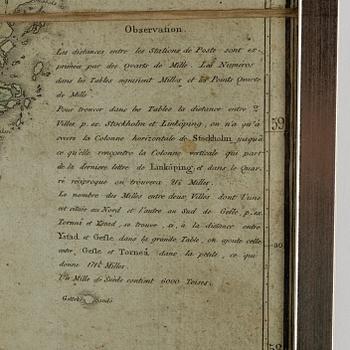 Observation.
Les distances entre les Stations de Poste sont ex-
primées par des Quarts de Mille. Les Numeros
dans les Tables signifient Milles et les Points Quarts
de Mille
Pour trouver dans les Tables la distance entre 2
Villes p. ex. Stockholm et Linköping, on n'a qu'à
la Colonne horizontale de Stockholm jusqu'à
ce qu'elle rencontre la Colonne verticale qui part
de la derniere lettre de Linköping et dans le Quar-
ré réciproque on trouvera Milles.
Le nombre des Milles entre deux Villes dont l'une
est située au Nord et l'autre au Sud de Gefle p. ex.
Torneå et Ystad, se trouve, si, à la distance entre
Ystad et Gefle dans la grande Table, on ajoute celle
entre Gefle et Torneå dans la petite, ce qui
donne Milles.
Mille de Suède contient 6000 Toises.
59
30
58